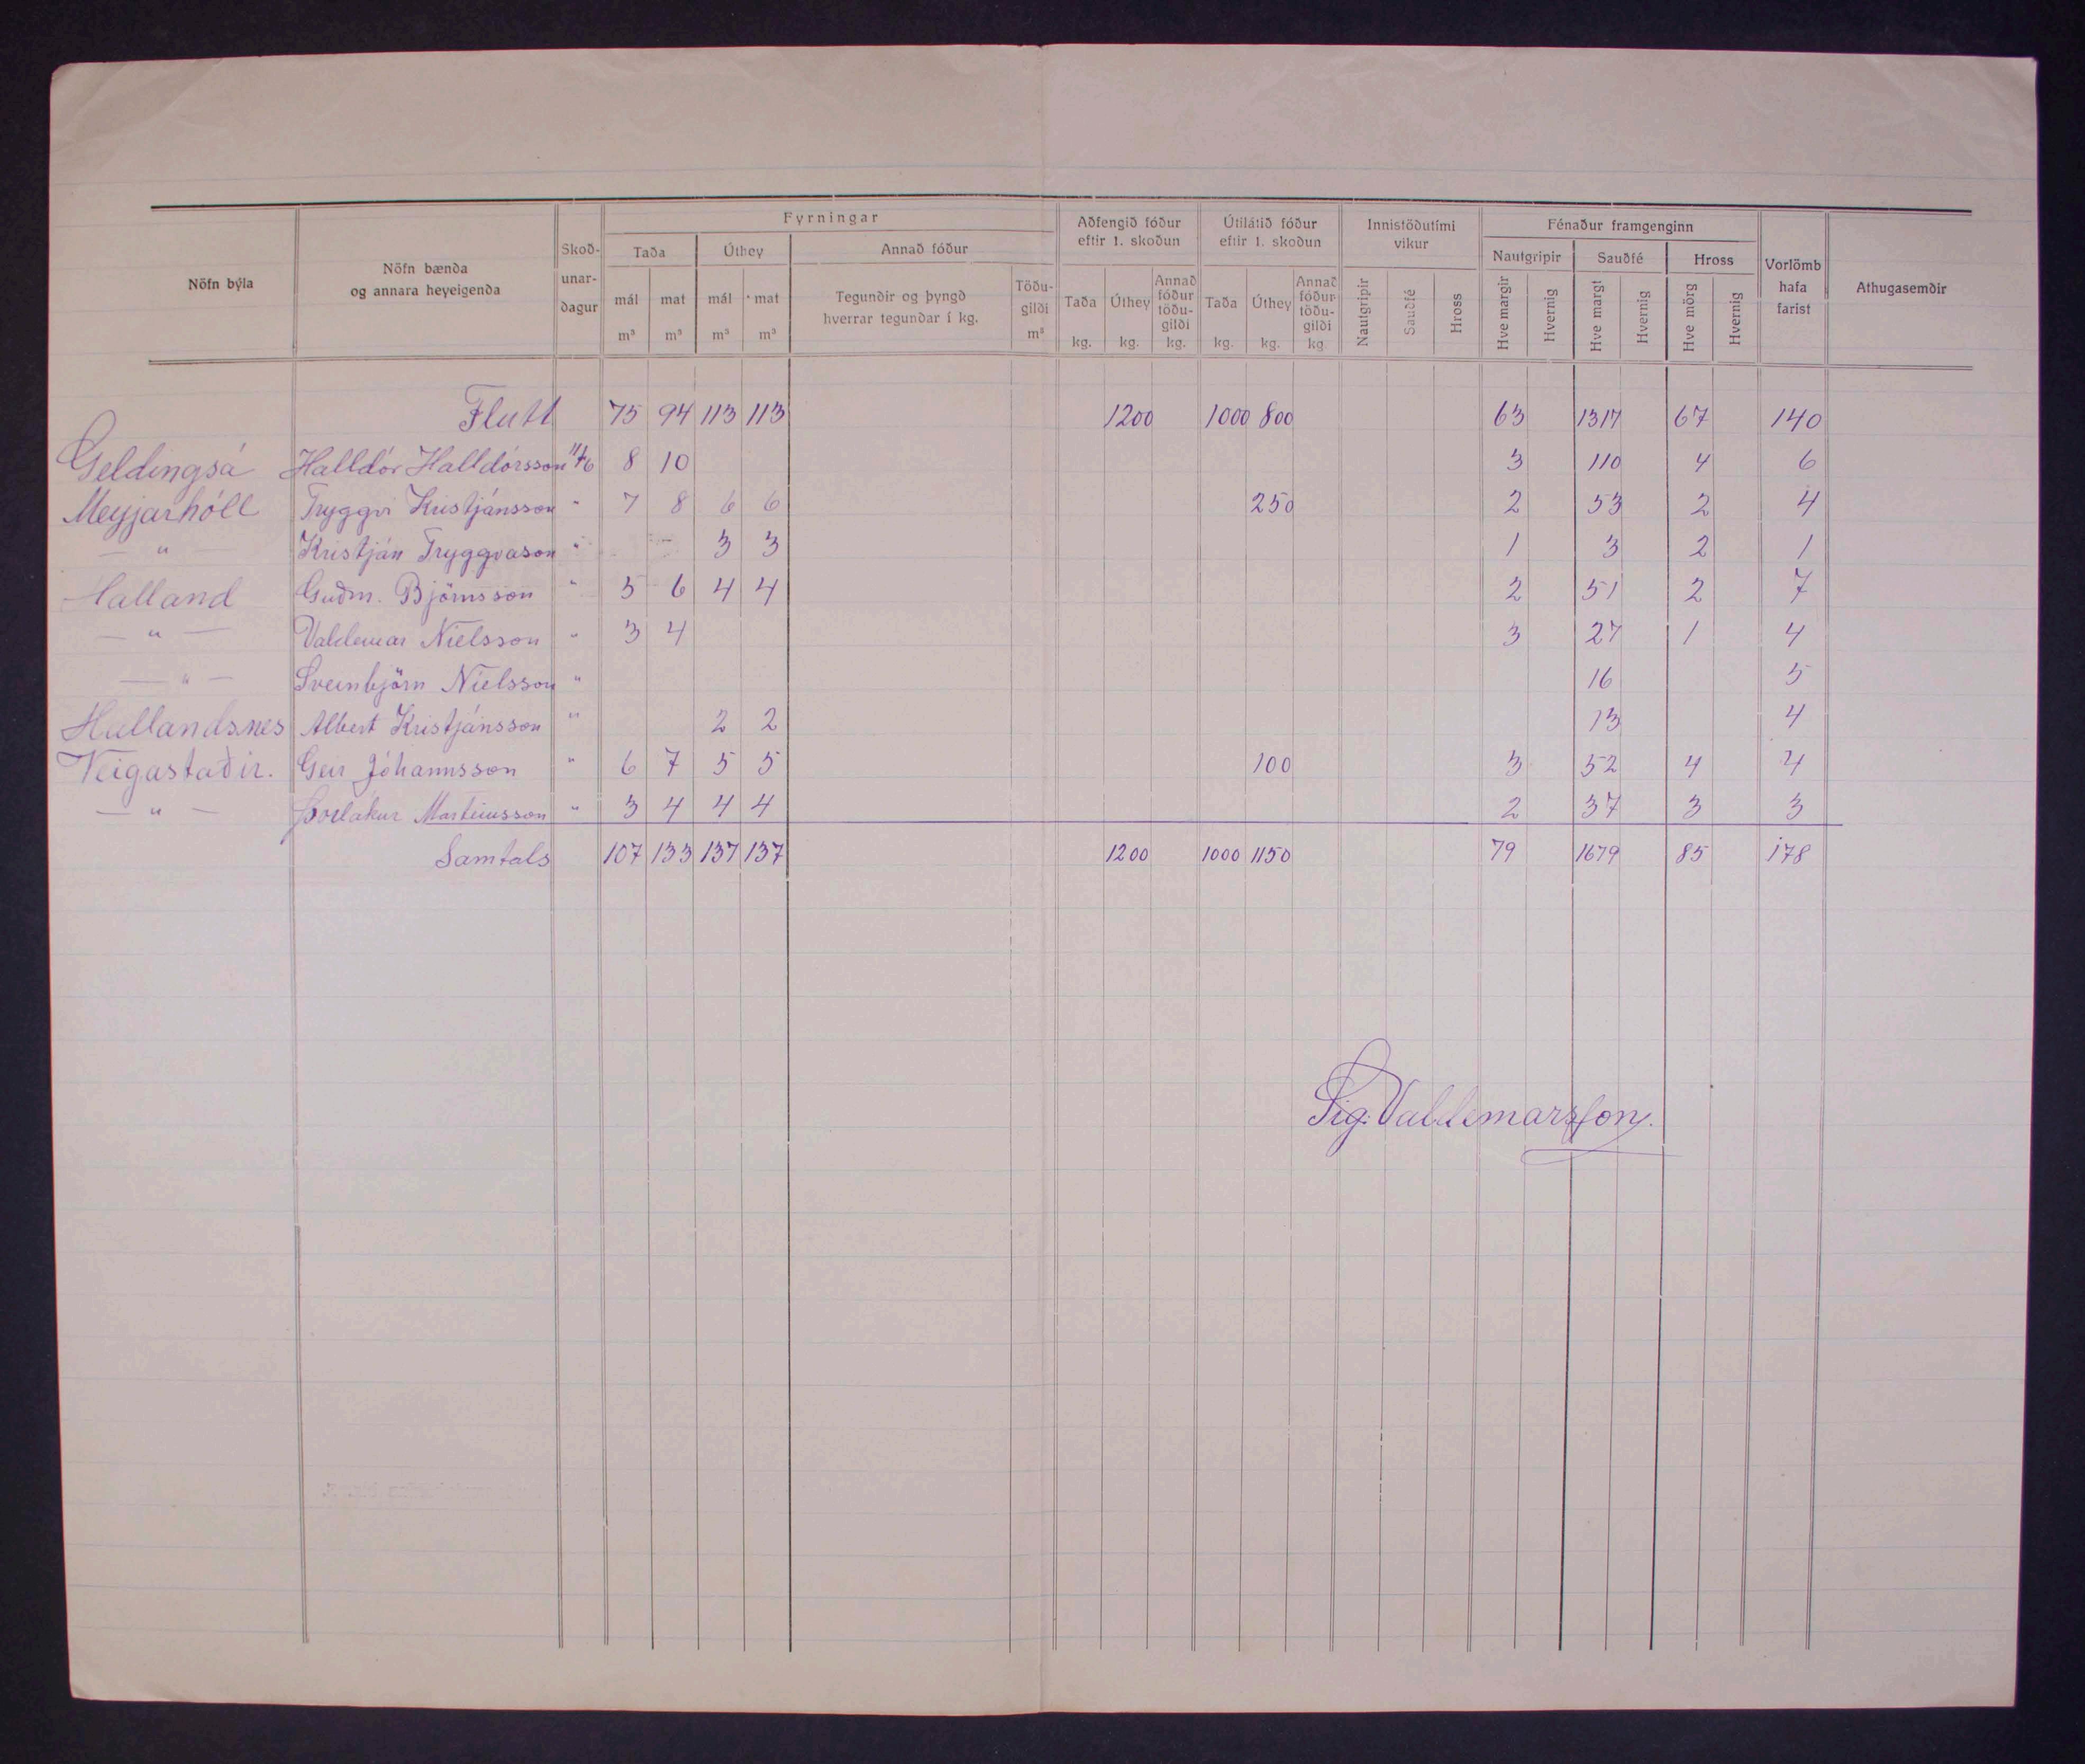 Nöfn býla
Nöfn bænda
og annara heyeigenda
Skoð-
unar-
dagur
Fyrningar
Taða
Úthey
Annað fóður
mál m³
mat m³
mál m³
mat m³
Tegundir og þyngd
hverrar tegundar í kg.
Töðu-
gildi
m³
Aðfengið fóður
eftir 1. skoðun
Taða kg.
Úthey kg.
Annað fóður töðu-gildi kg.
Útilátið fóður
eftir 1. skoðun
Taða kg.
Úthey kg.
Annað fóður töðu-gildi kg
Innistöðutími
vikur
Nautgripir
Sauðfé
Hross
Fénaður framgenginn
Nautgripir
Sauðfé
Hross
Hve margir
Hvernig
Hve margt
Hvernig
Hve mörg
Hvernig
Vorlömb
hafa
farist
Athugasemdir
Flutt 75 94 113 113 1200 1000 800 63 1317 67 140
Geldingsá Halldór Halldórsson 11/6 8 10 3 110 4 6
Meyjarhóll Tryggvi Kristjánsson " 7 8 6 6 250 2 53 2 4
— " — Kristján Tryggvason " 3 3 1 3 2 1
Halland Guðm. Björnsson " 5 6 4 4 2 51 2 7
— " — Valdemar Níelsson " 3 4 3 27 1 4
— " — Sveinbjörn Níelsson " 16 5
Hallandsnes Albert Kristjánsson " 2 2 13 4
Veigastaðir. Geir Jóhannsson " 6 7 5 5 100 3 52 4 4
— " — Þorlákur Marteinsson " 3 4 4 4 2 37 3 3
Samtals 107 133 137 137 1200 1000 1150 79 1679 85 178
Sig. Valdemarsson.